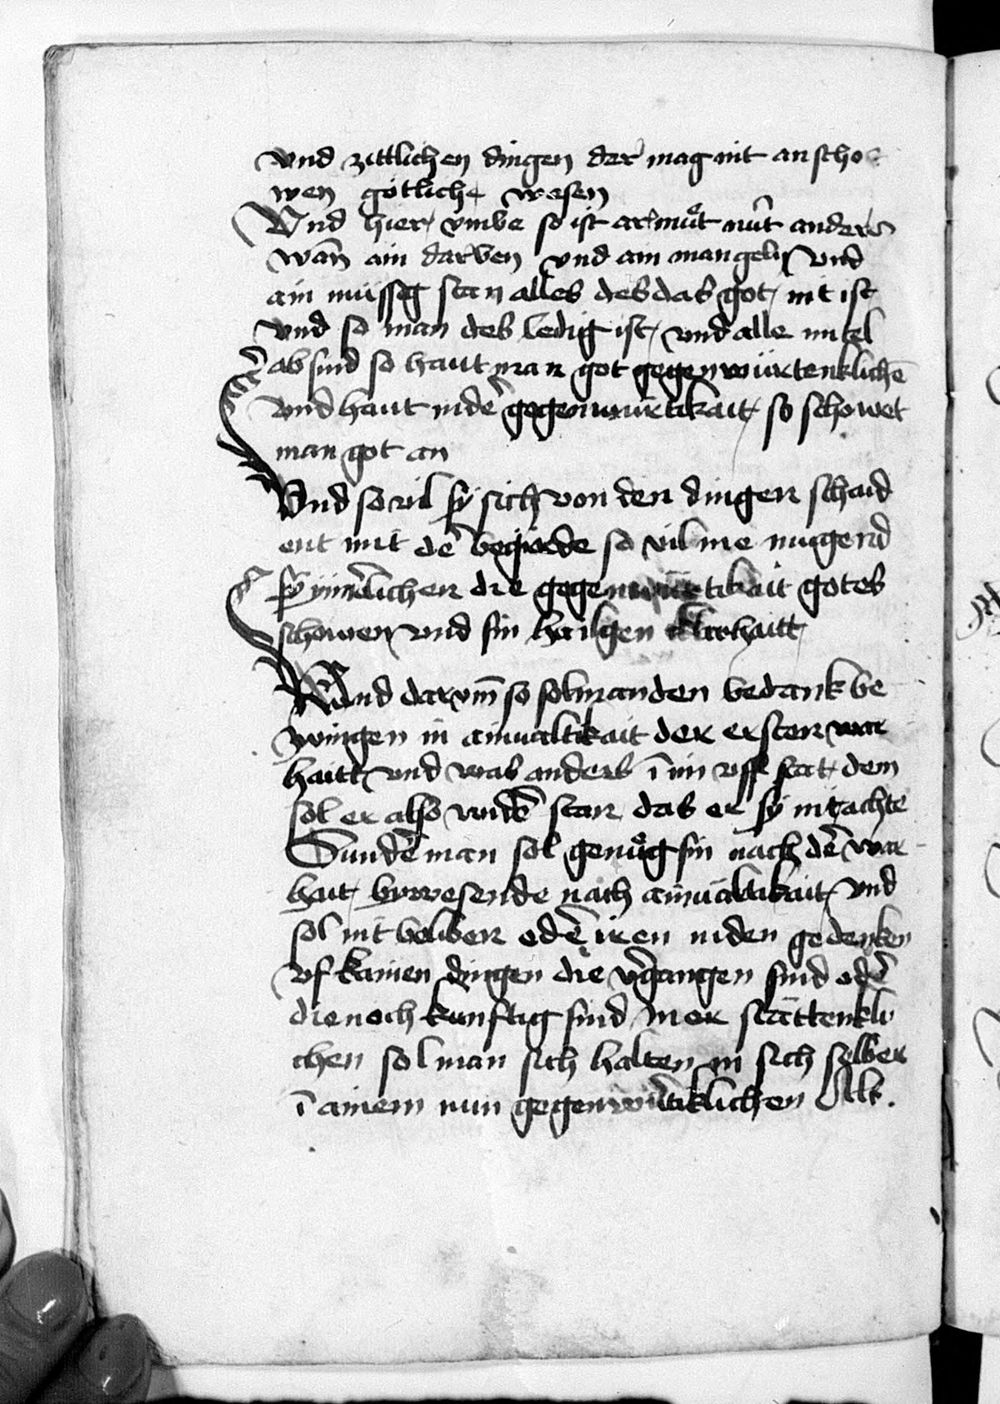 vnd zittlichen dingen der mag nit an scho
wen götliche wesen
Vnd hier vmbe so ist armuͦt nu̍t anders
wan̄ ain darben vnd ain mangeln vnd
ain müssig stan alles des das got nit ist
vnd so man des ledig ist vnd alle mitel
ab sind so haut man got gegenwürtenklichē
vnd haut in de͛ gegenwürtikait so schowet
man got an
Vnd so vil sy sich von den dingen schaid
ent mit de͛ begirde so vil me mugend
sy inn͛lichen die gegenwürtikait gotes
schowen vnd sin hailgen klarhaitt
Vnd darvm̄ so sol man den bedank be
zwingen in ainualtikait der ersten war
haitt vnd was anders ī im vff stat dem
sol er also vnd͛ stan das er sy nit achte
Sunde͛ man sol genuͦg sin nach de͛ war
hait bywesende nach ainualtikait vnd
sol nit beliben ode͛ iren in den gedenken
vf kainen dingen die v͛gangen sind ode͛
die noch künftig sind mer stättenkli
chen sol man sich halten in sich selber
ī ainem nun gegenwürtiklichen